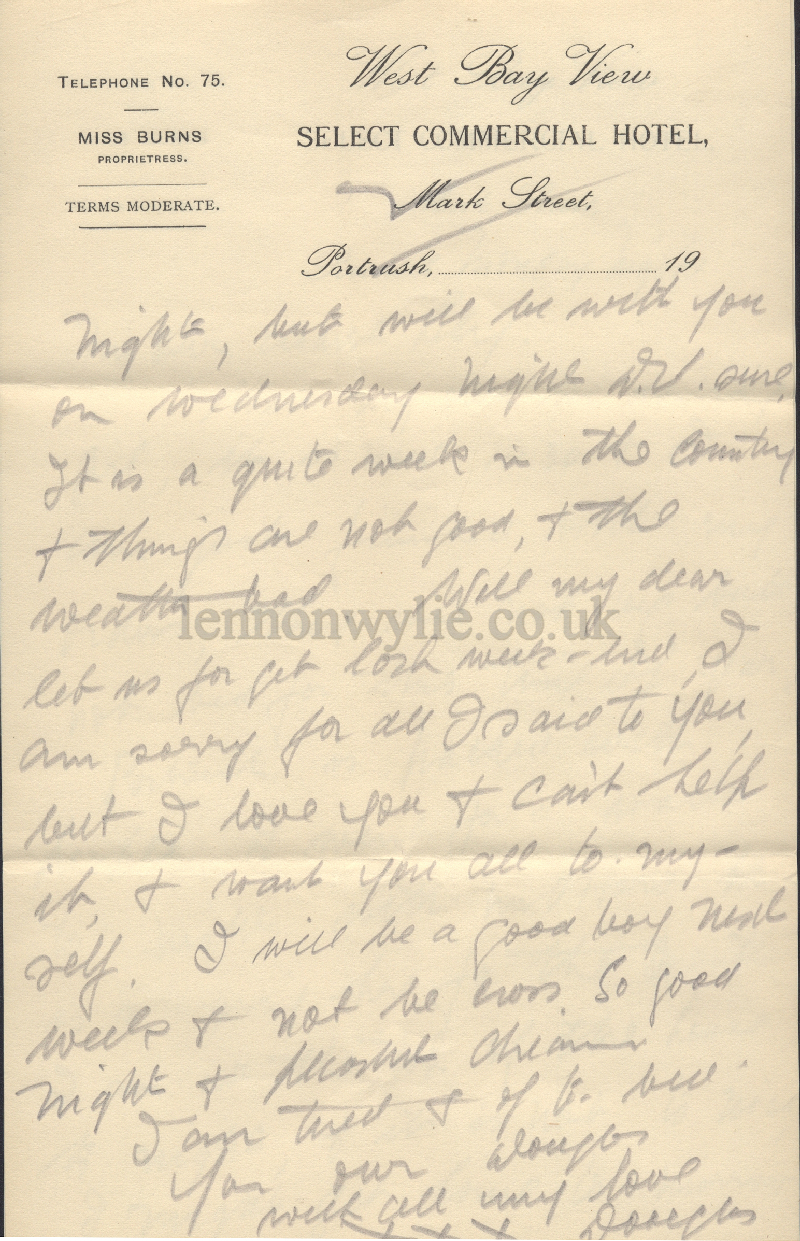 TELEPHONE NO. 75.
MISS BURNS
PROPRIETRESS.
TERMS MODERATE.
West Bay View
SELECT COMMERCIAL HOTEL,
Mark Street,
Portrush, 19
night, but will be with you
on wednesday night D.V. sure,
It is a quite week in the country
+ things are not good, + the
weather bad. Well my dear
lennonwylie.co.uk
let us for get last week-end, I
am sorry for all I said to you,
but I love you + can't help
it, + want you all to my-
self. I will be a good boy next
week + not be cross. So good
night + pleasant dreams
I am tired + off to bed.
Your own Douglas
with all my love
x x x Douglas